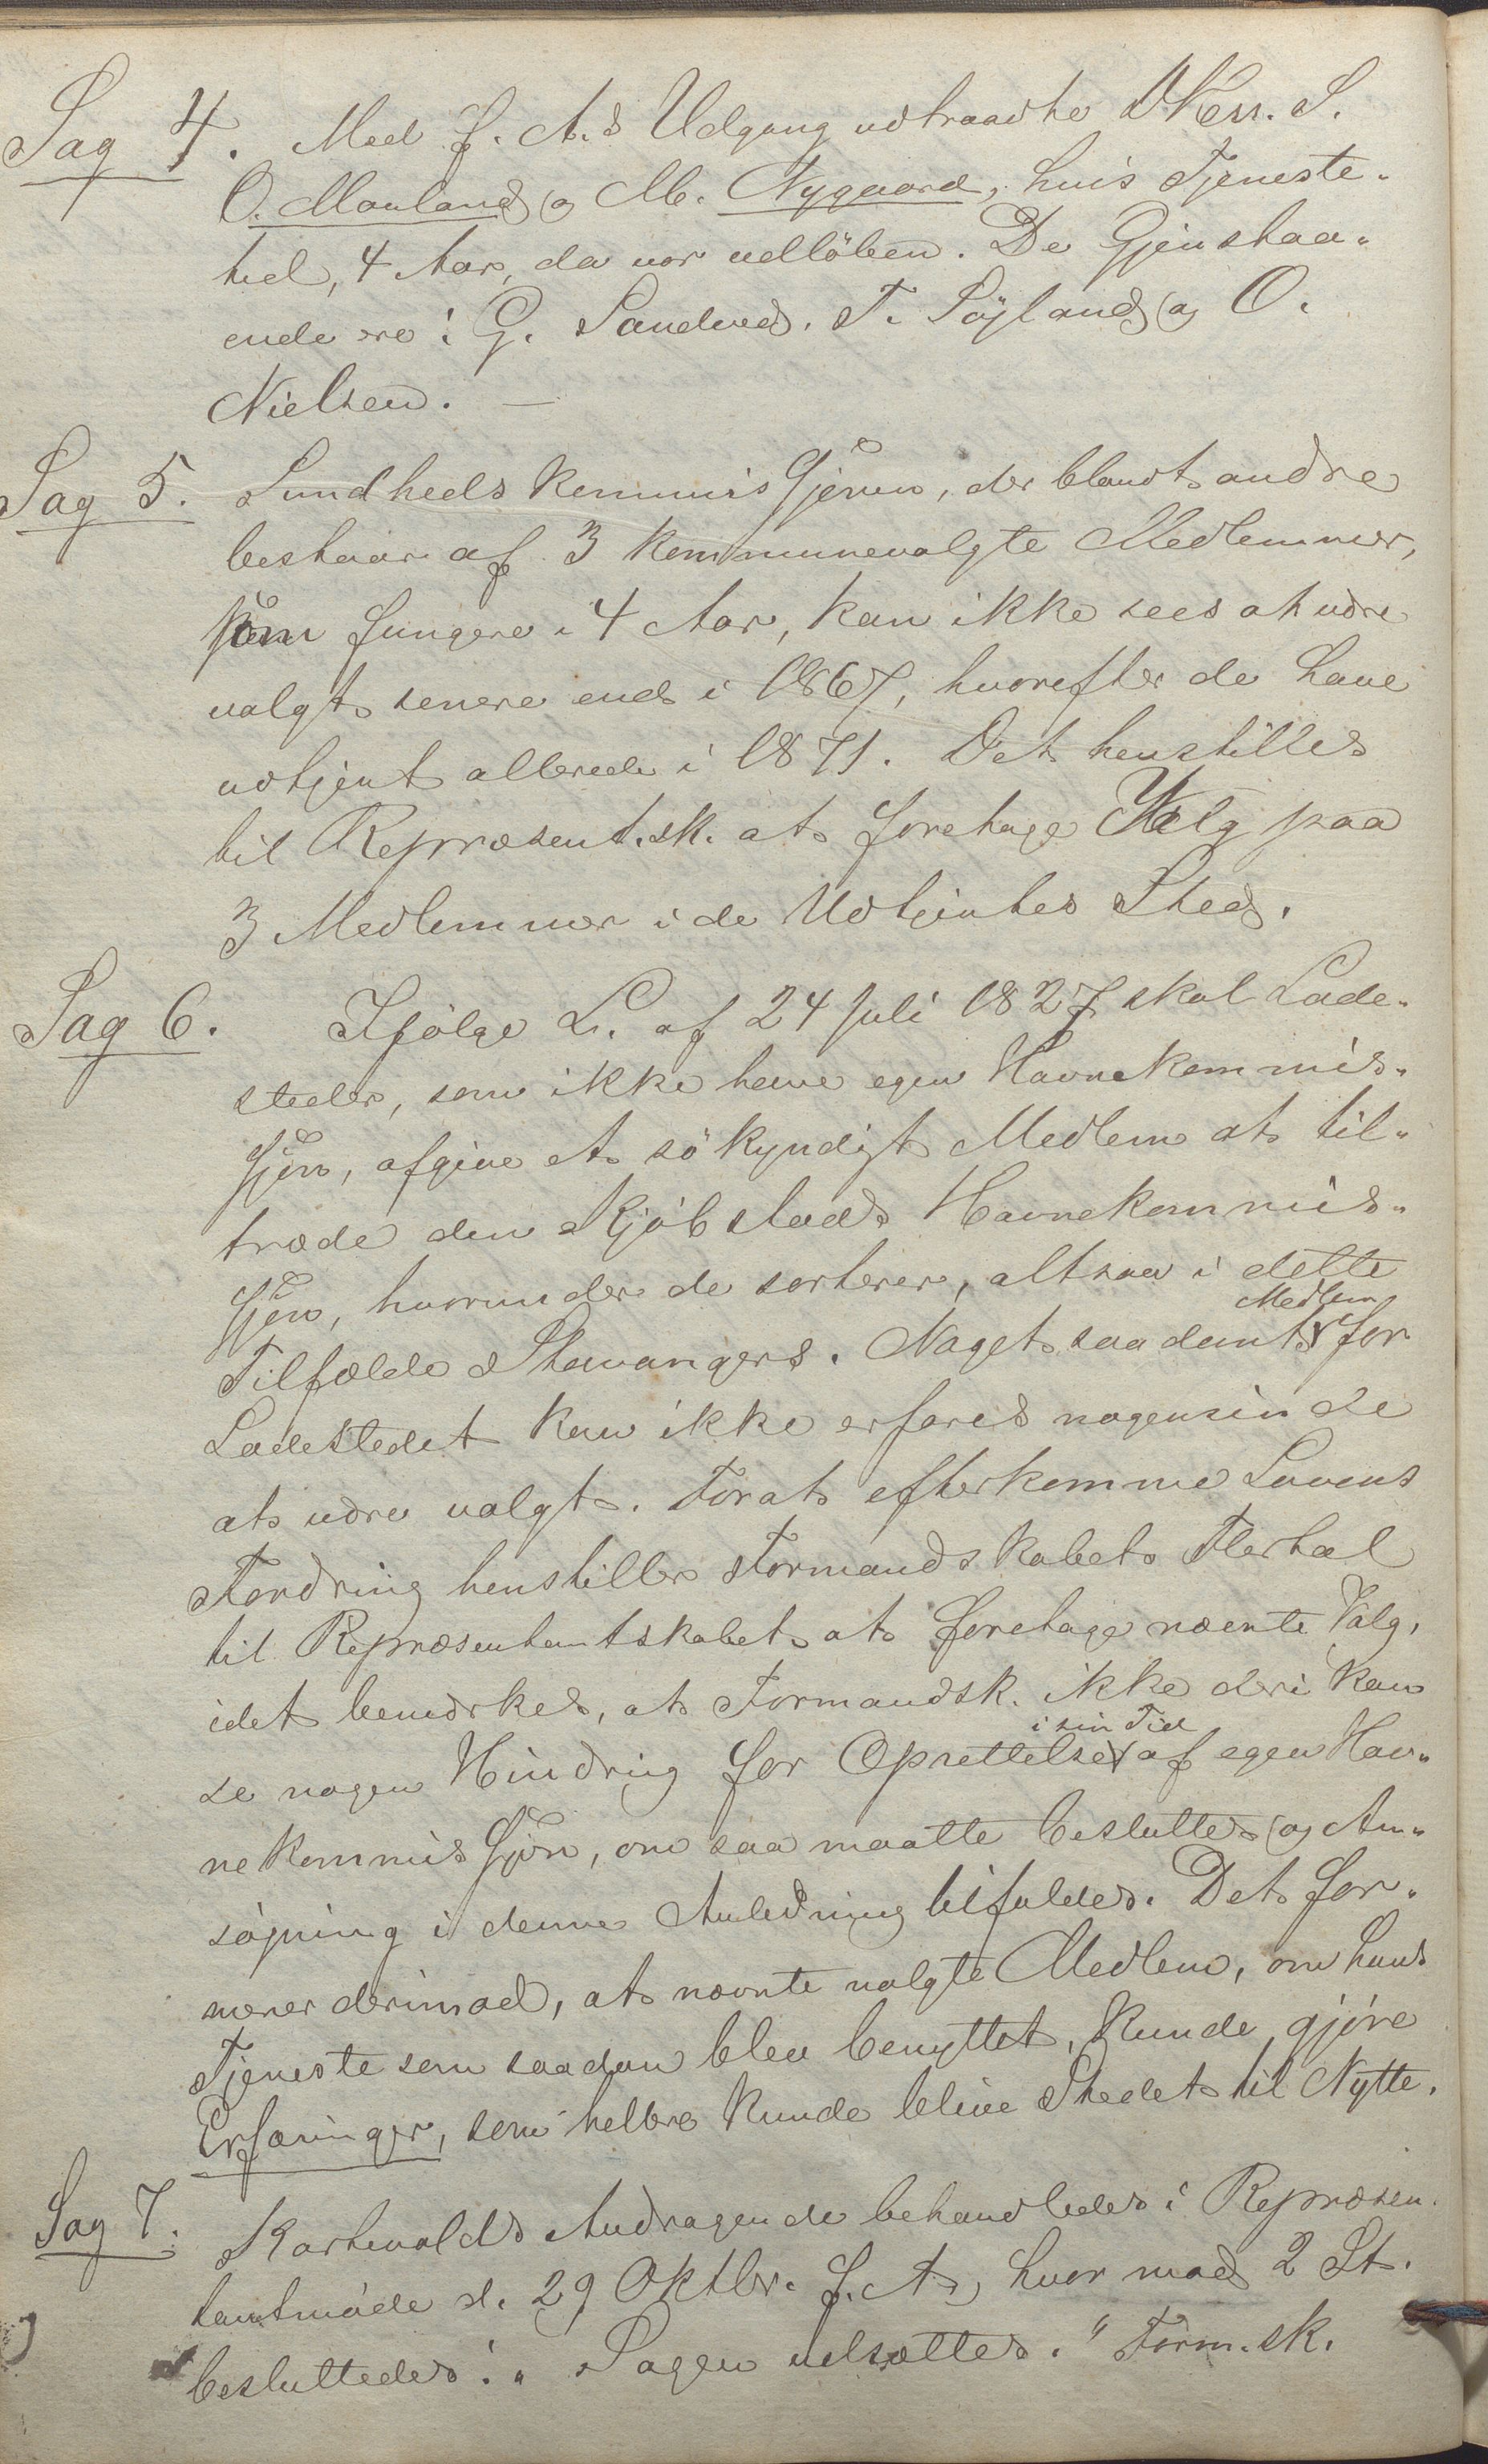 Sag 4. Med f. A.s Udgang udtraadte DHerr. S.
O. Mauland og M. Nygaard, hvis Tjeneste-
tid, 4 Aar, da var udlöben. De Gjenstaa-
ende ere: G. Sandved. T. Söyland og O.
Nielsen. —
Sag 5. Sundhedskommissjonen, der blandt andre
bestaar af 3 kommunevalgte Medlemmer,
som fungere i 4 Aar, kan ikke sees at være
valgt senere end i 1867, hvorefter de have
udtjent allerede i 1871. Det henstilles
til Repræsent.sk. at foretage Valg paa
3 Medlemmer i de Udtjentes Sted.
Sag 6. Ifölge L. af 24 Juli 1827 skal Lade-
steder, som ikke have egen Havnekommis-
sjon, afgive et sökyndigt Medlem at til-
træde den Kjöbstads Havnekommis-
sjon, hvorunder de sorterer, altsaa i dette
Medlem
Tilfælde Stavangers. Noget saadant for
Ladestedet kan ikke erfares nogensinde
at være valgt. Forat efterkomme Lovens
Fordring henstiller Formandskabets Flertal
til Repræsentantskabet at foretage nævnte Valg,
idet bemærkes, at Formandsk. ikke deri kan
i sin Tid
se nogen Hindring for Oprettelse af egen Hav-
nekommissjon, om saa maatte besluttes og An-
søgning i denne Anledning bifaldes. Det for-
mener derimod, at nævnte valgte Medlem, om hans
Tjeneste som saadan blev benyttet, kunde gjöre
Erfaringer, som heller kunde blive Stedet til Nytte.
Sag 7. Kartevolds Andragende behandledes i Repræsen-
tantmöde d. 29 Oktbr. f. A., hvor mod 2 St.
besluttedes: „Sagen udsættes." Form.sk.